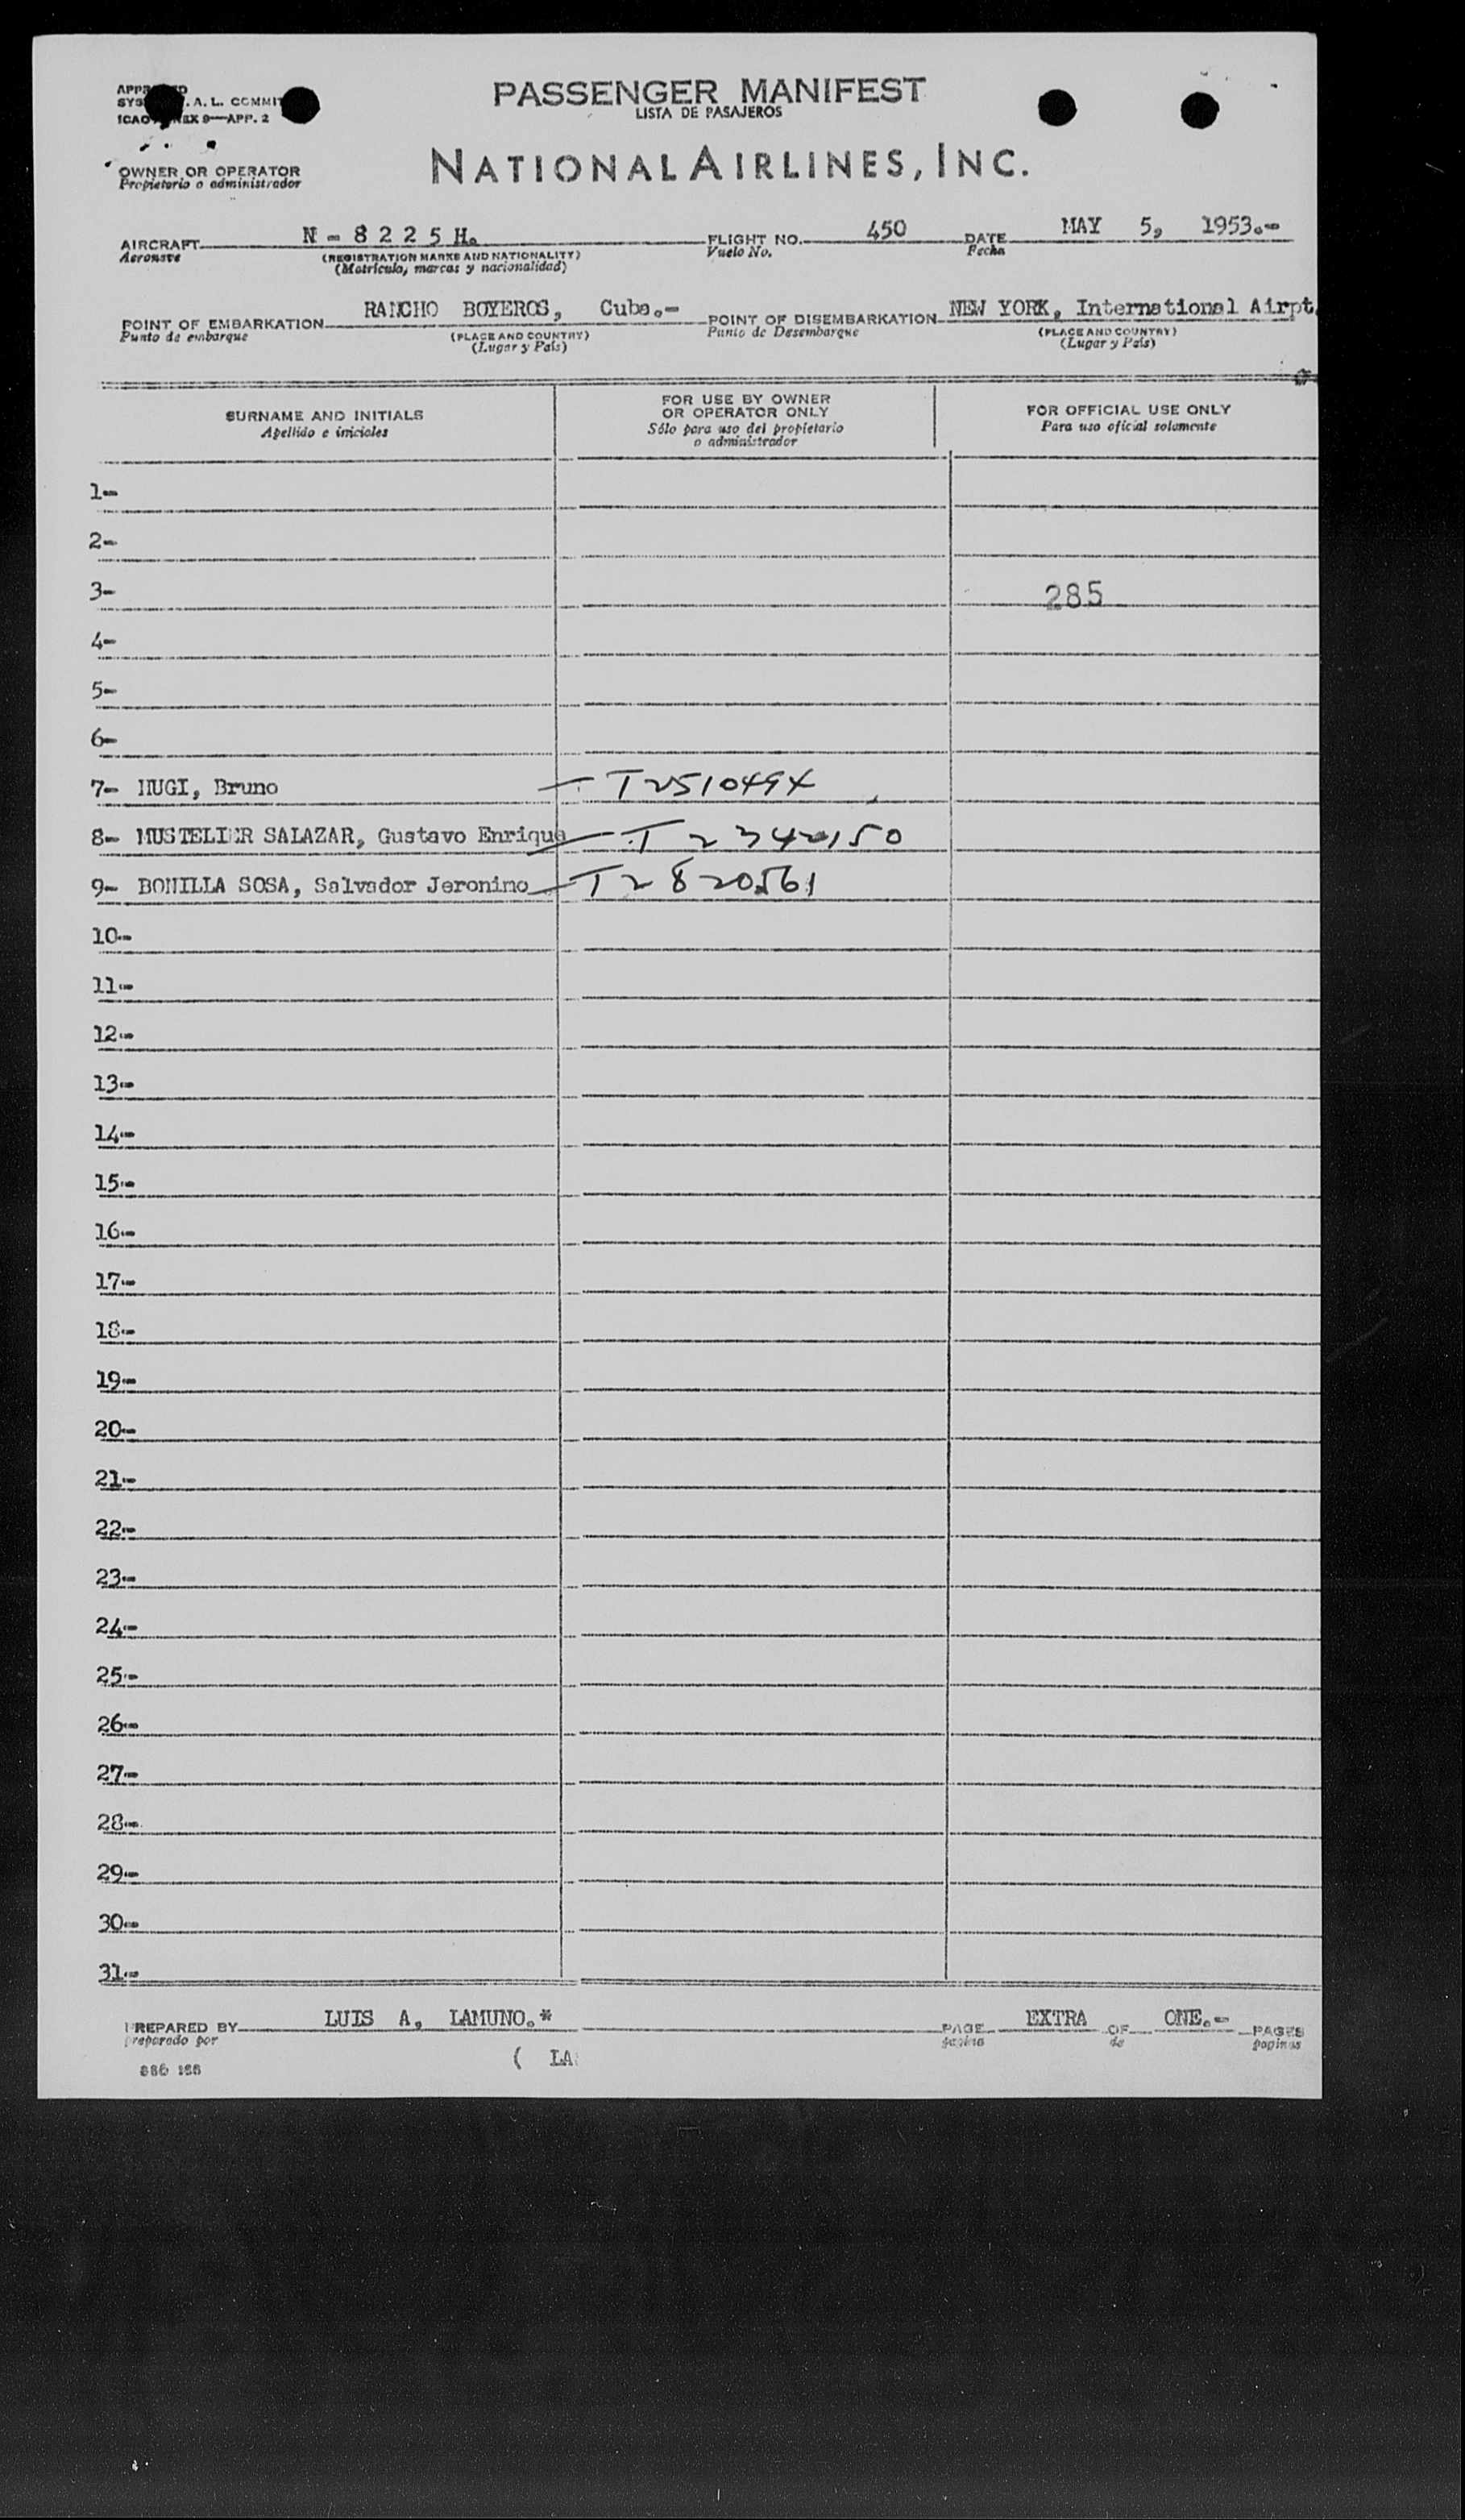 PASSENGER MANIFEST
LISTA DE PASAJEROS
A. L.
ICAO 9—APP. 2
OWNER OR OPERATOR
Propietario o administrador
NATIONAL AIRLINES, INC.
AIRCRAFT N - 8 2 2 5 H. FLIGHT NO. 450 DATE MAY 5, 1953.-
Aeronave (REGISTRATION MARKS AND NATIONALITY) Vuelo No. Fecha
(Matrícula, marcas y nacionalidad)
POINT OF EMBARKATION RANCHO BOYEROS, Cuba.- POINT OF DISEMBARKATION NEW YORK, International Airpt.
Punto de embarque (PLACE AND COUNTRY) Punto de Desembarque (PLACE AND COUNTRY)
(Lugar y País) (Lugar y País)
SURNAME AND INITIALS
Apellido e iniciales
FOR USE BY OWNER
OR OPERATOR ONLY
Sólo para uso del propietario
o administrador
FOR OFFICIAL USE ONLY
Para uso oficial solamente
1-
2-
3- 285
4-
5-
6-
7- Bruno
8- MUSTELIER SALAZAR, Gustavo Enrique
9- BONILLA SOSA, Salvador Jeronimo T2820561
10-
11-
12-
13-
14-
15-
16-
17-
18-
19-
20-
21-
22-
23-
24-
25-
26-
27-
28-
29-
30-
31-
PREPARED BY LUIS A, LAMUNO.* PAGE EXTRA OF ONE.- PAGES
preparado por pagina de paginas
( LA